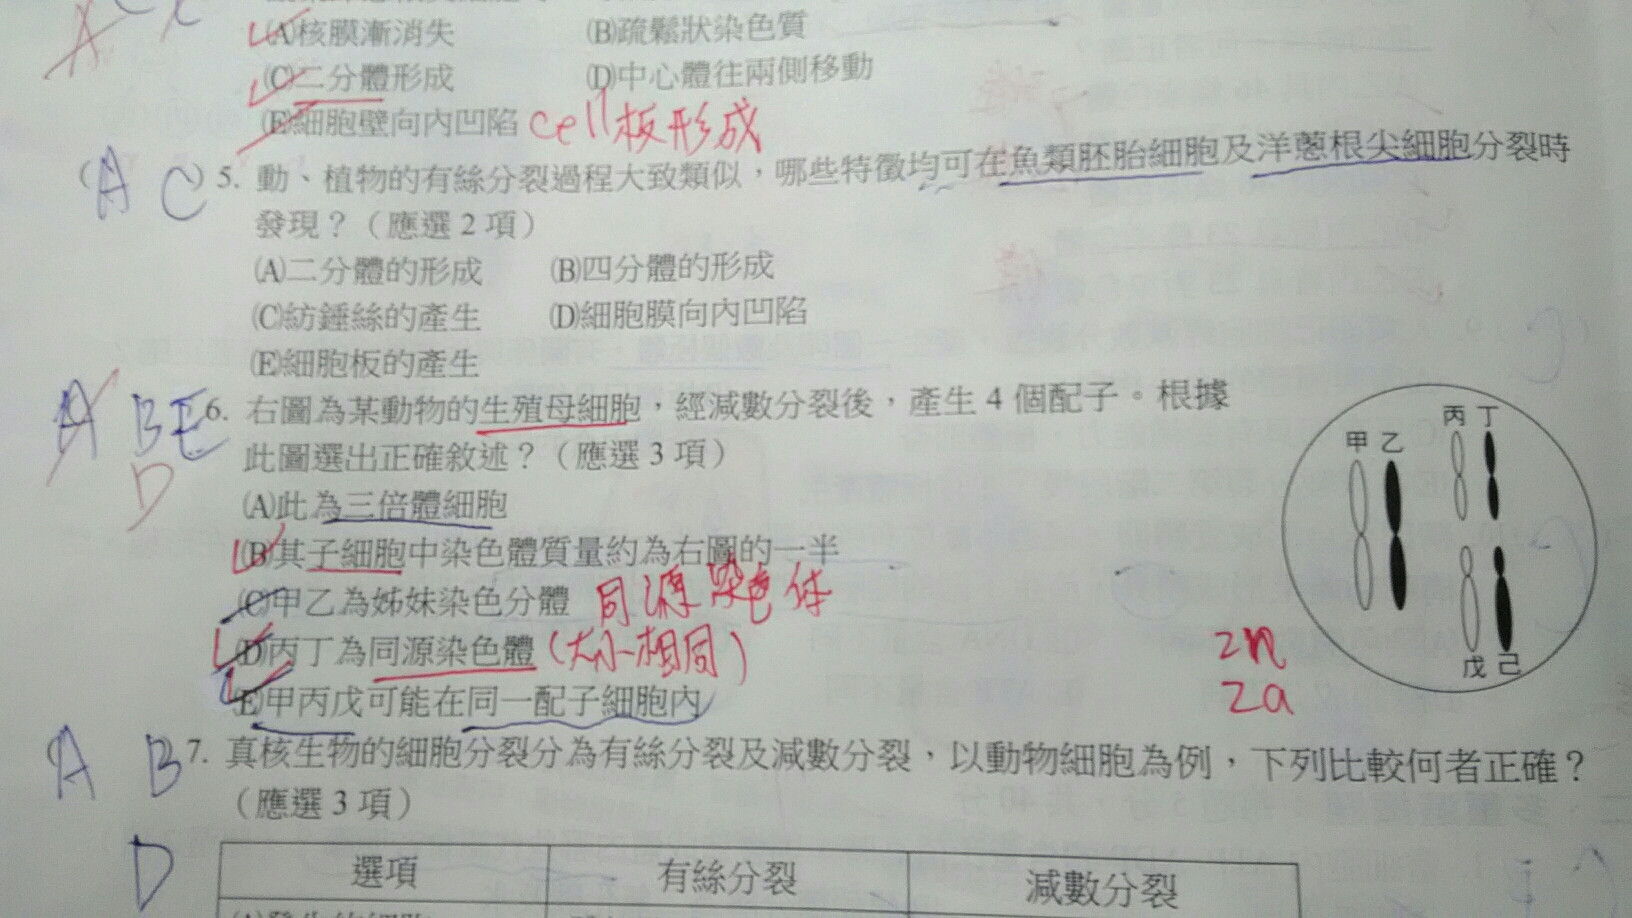 (A)核膜漸消失 (B)疏鬆狀染色質
(C)二分體形成 (D)中心體往兩側移動
(E)細胞壁向內凹陷 cell板形成
(A C) 5. 動、植物的有絲分裂過程大致類似,哪些特徵均可在魚類胚胎細胞及洋蔥根尖細胞分裂時
發現?(應選2項)
(A)二分體的形成 (B)四分體的形成
(C)紡錘絲的產生 (D)細胞膜向內凹陷
(E)細胞板的產生
A B E 6. 右圖為某動物的生殖母細胞,經減數分裂後,產生4個配子。根據
D 此圖選出正確敘述?(應選3項)
(A)此為三倍體細胞
(B)其子細胞中染色體質量約為右圖的一半
(C)甲乙為姊妹染色分體 同源染色体
(D)丙丁為同源染色體(大小相同)
(E)甲丙戊可能在同一配子細胞內
丙 丁
甲 乙
戊 己
2n
2a
A B 7. 真核生物的細胞分裂分為有絲分裂及減數分裂,以動物細胞為例,下列比較何者正確?
(應選3項)
D
選項 有絲分裂 減數分裂